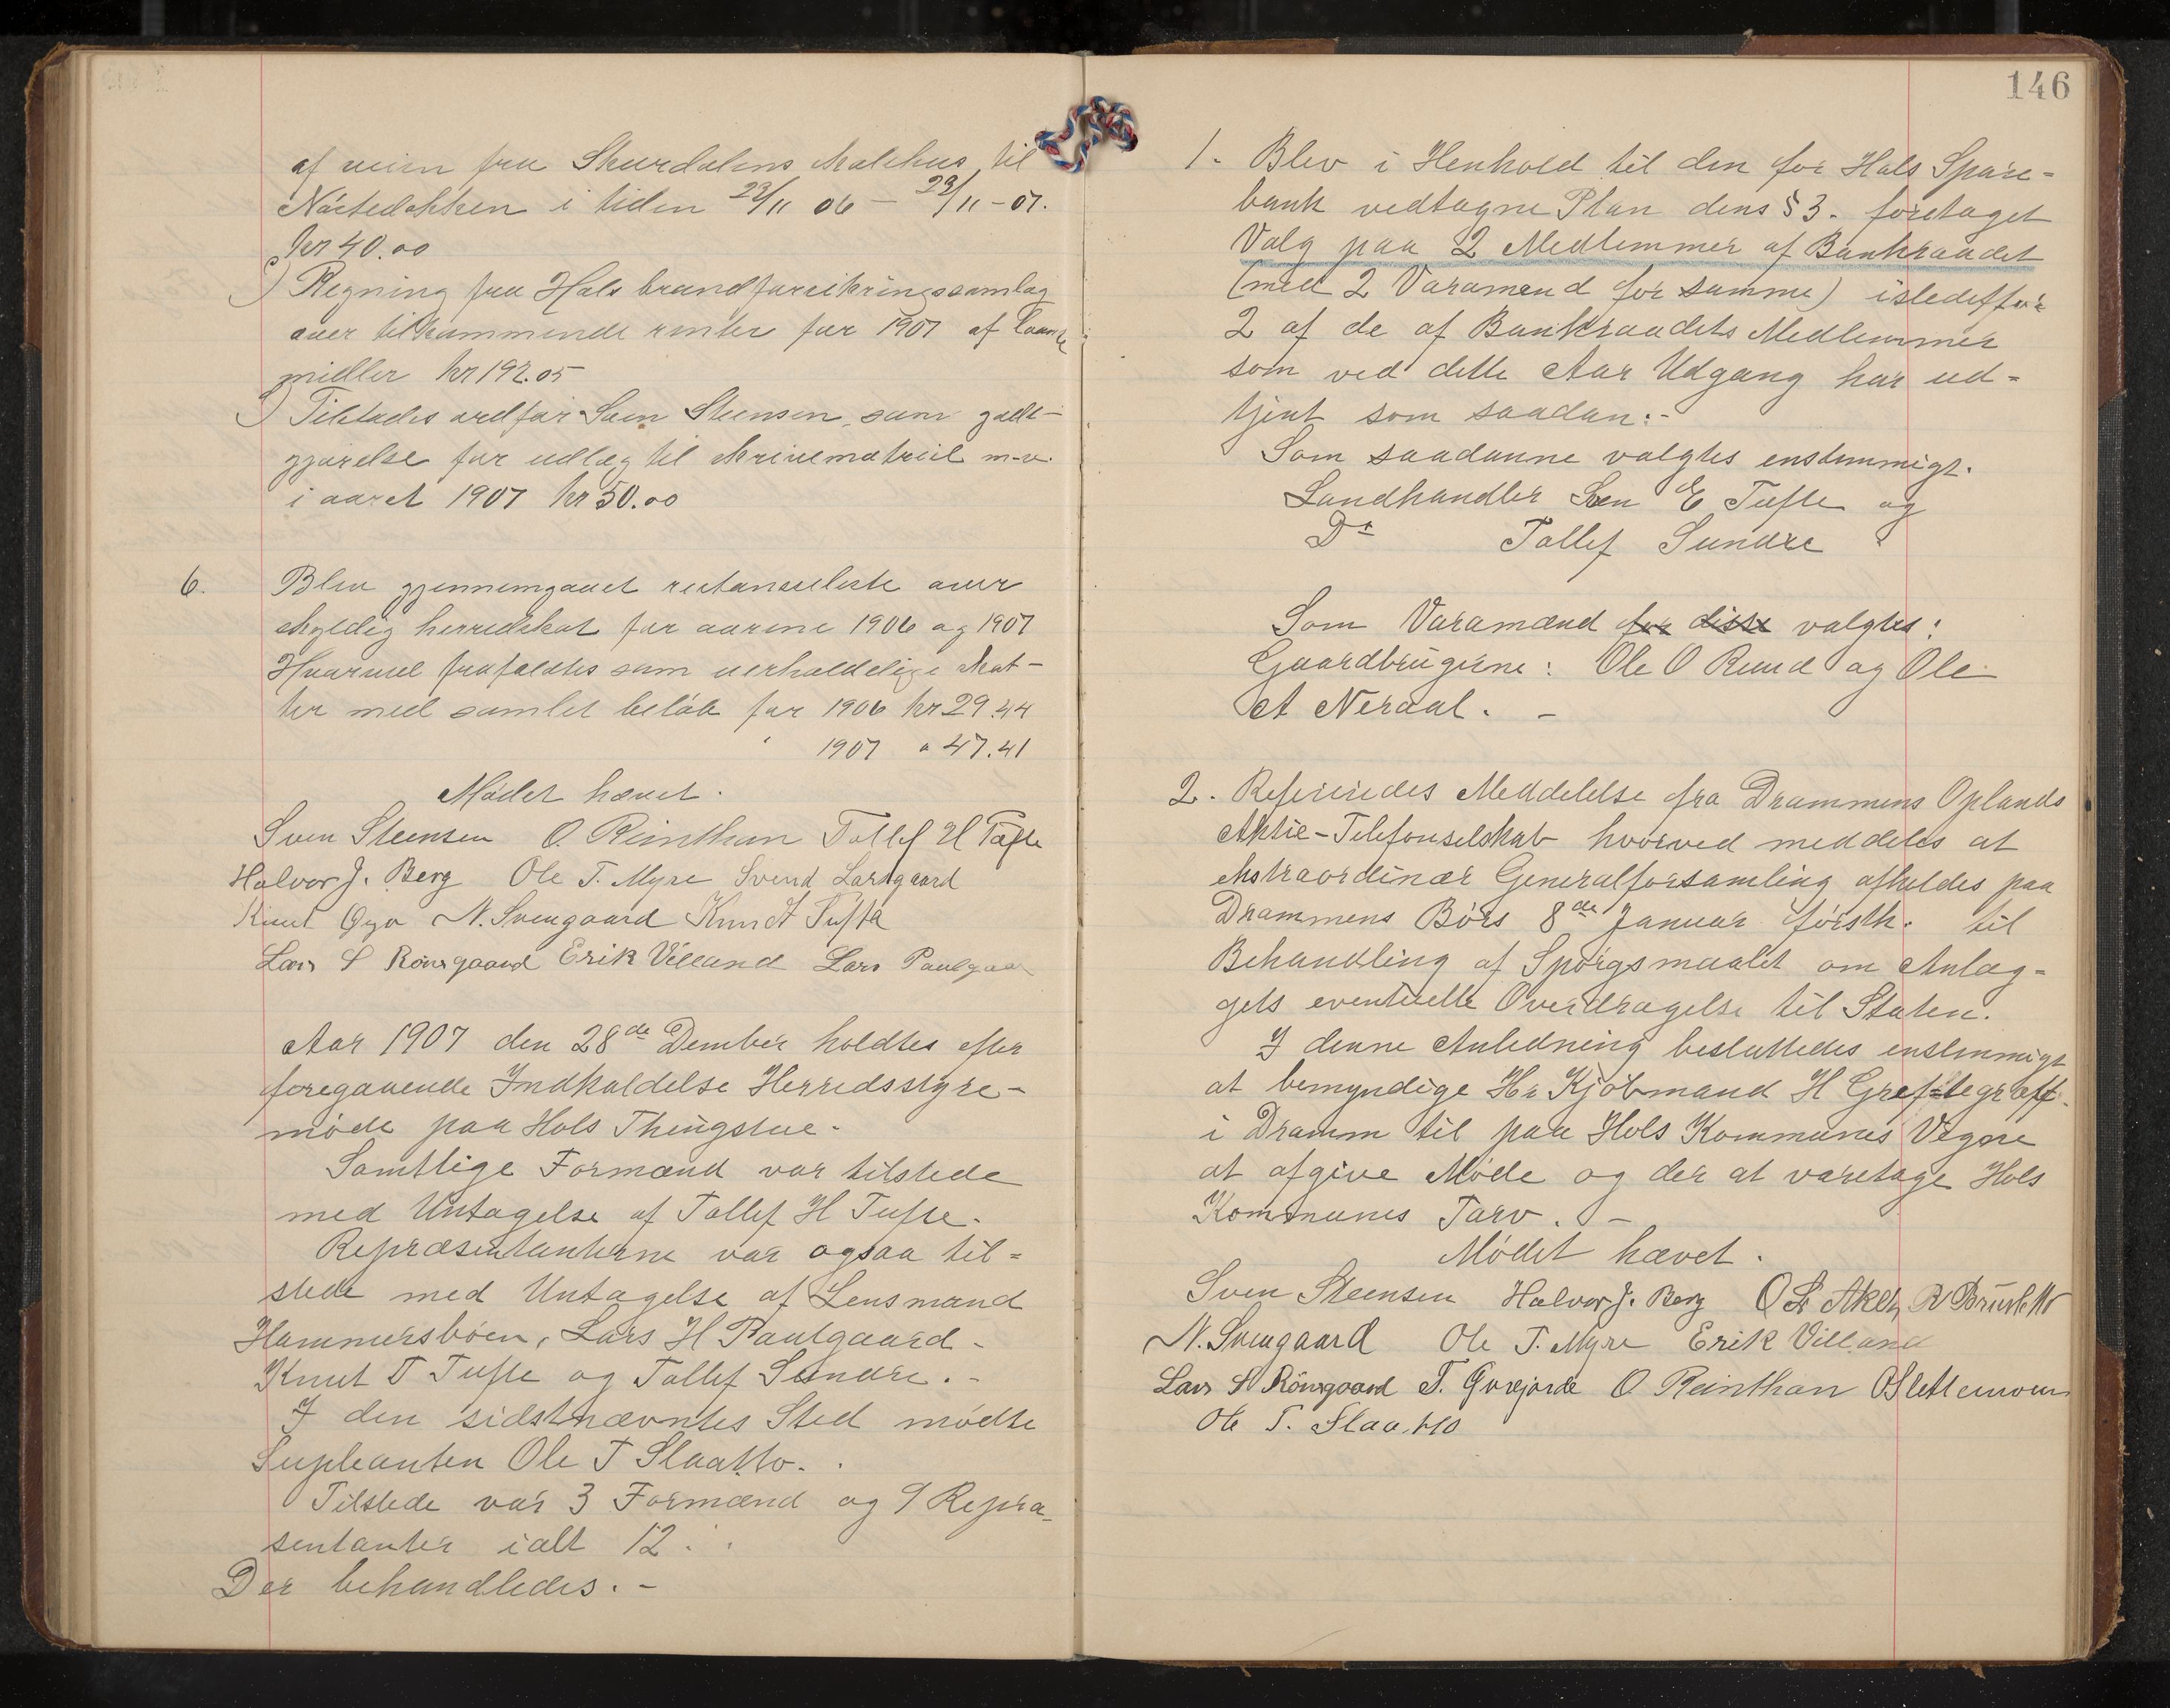 af veien fra Skurdalens Malkhus til
Nästedokken i tiden 23/11 06 – 23/11 – 07.
kr 40.00
c) Regning fra Hols brandforsikringssamlag
over tilkommende renter for 1907 af laante
midler kr 192.05
d) Tilstodes ordfør Sven Steensen, som godt-
gjørelse for udlæg til skrivematriel m.v.
i aaret 1907 kr 50.00
6. Blev gjennemgaaet restanseliste over
skyldig herredskat for aarene 1906 og 1907
Hvorved frafaldtes som uerholdelige skat-
ter med samlet beløb for 1906 kr 29.44
" 1907 " 47.41
Mødet hævet.
Sven Steensen O. Reinthan Tollef H Tufte
Halvor J. Berg Ole T. Myre Svend Larsgaard
Knut Øyo N. Svengaard Knudt Tufta
Lars S Rönsgaard Erik Villand Lars Paulgaar
Aar 1907 den 28de Dember holdtes efter
foregaaende Indkaldelse Herredsstyre-
møde paa Hols Thingstue.
Samtlige Formænd var tilstede
med Untagelse af Tollef H Tufte.
Repræsentanterne var ogsaa til=
stede med Untagelse af Lensmand
Hammersbøen, Lars H Paulgaard.
Knut T Tufte og Tollef Sundre. -
I den sidstnævntes Sted mødte
Supleanten Ole T Slaatto.
Tilstede var 3 Formænd og 9 Repræ-
sentanter ialt 12.
Der behandledes. -
146
1. Blev i Henhold til den for Hols Spare=
bank vedtagne Plan dens § 3. foretaget
Valg paa 2 Medlemmer af Bankraadet
(med 2 Varamænd for samme) istedetfor
2 af de af Bankraadets Medlemmer
som ved dette Aar Udgang har ud=
tjent som saadan:-
Som saadanne valgtes enstemmigt.
Landhandler Sven E Tufte og
Do Tollef Sundre
Som Varamænd for disse valgtes:
Gaardbrugerne: Ole O Ruud og Ole
A Neraal. -
2. Refereredes Meddelelse fra Drammens Oplands
Aktie-Telefonselskab hvorved meddeles at
ekstraordinær Generalforsamling afholdes paa
Drammens Børs 8de Januar førstk. til
Behandling af Spørgsmaalet om Anlæg=
gets eventuelle Overdragelse til Staten.
I denne Anledning besluttedes enstemmigt
at bemyndige Hr Kjøbmand H Greftegreff.
i Dramm til paa Hols Kommunes Vegne
at afgive Møde og der at varetage Hols
Kommunes Tarv. -
Mødet hævet.
Sven Steensen Halvor J. Berg
N. Svengaard Ole T. Myre Erik Villand
Lars S Rönsgaard T. Gurejorde O Reinthan O Slettemoen
Ole T. Slaatto